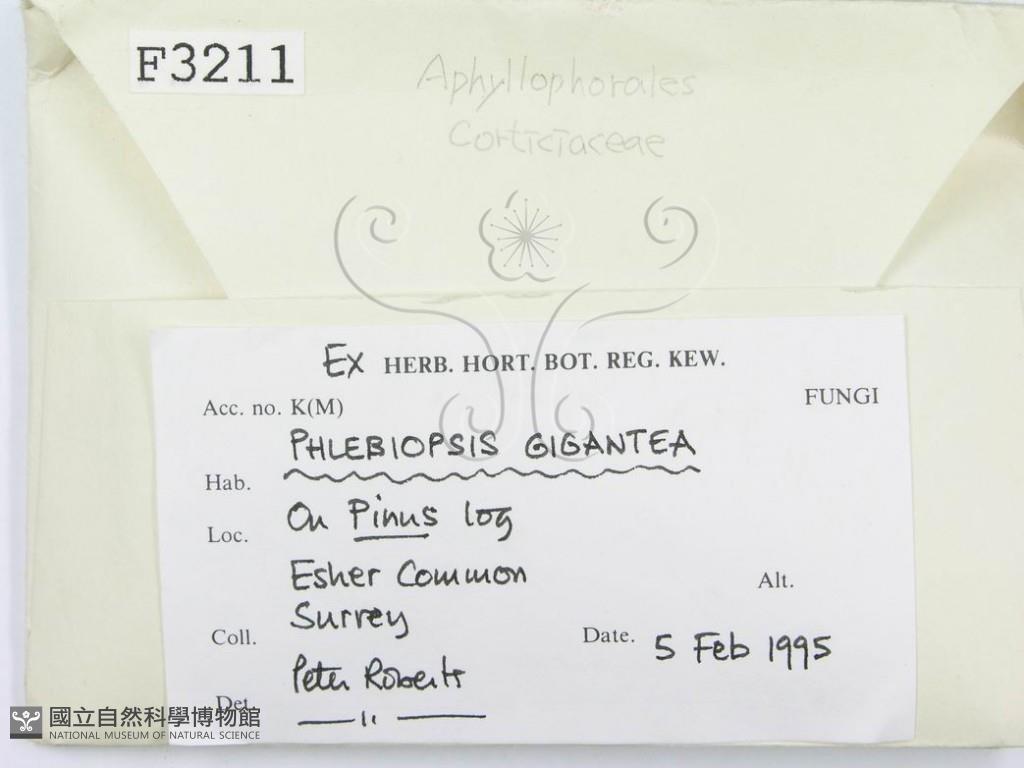 F3211
Aphyllophorales
Corticiaceae
Ex HERB. HORT. BOT. REG. KEW.
FUNGI
Acc. no. K(M)
PHLEBIOPSIS GIGANTEA
Hab.
On Pinus log
Loc.
Esher Common
Alt.
Surrey
Coll.
Date. 5 Feb 1995
Peter Roberts
Det.
— 11 —
國立自然科學博物館
NATIONAL MUSEUM OF NATURAL SCIENCE